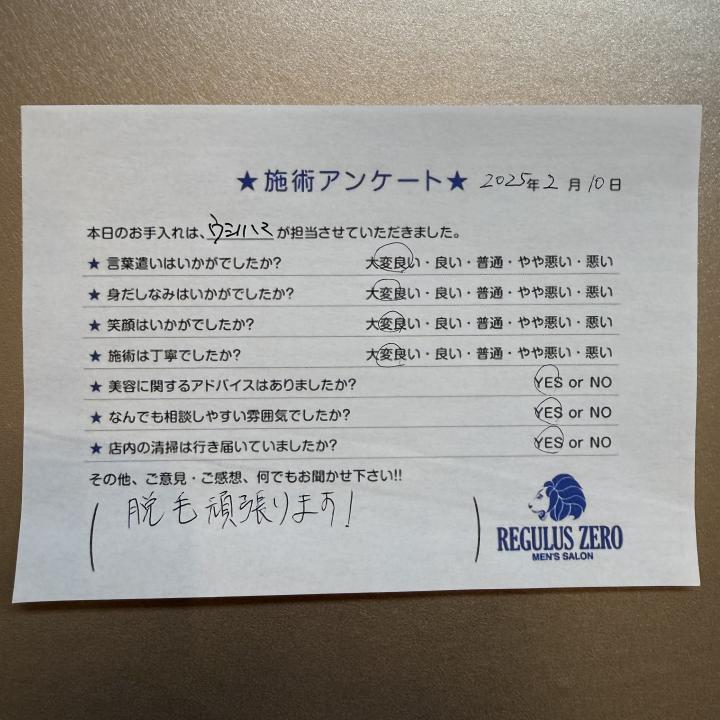 ★施術アンケート★ 2025年2月10日
本日のお手入れは、ウシハマが担当させていただきました。
★ 言葉遣いはいかがでしたか? 大変良い・良い・普通・やや悪い・悪い
★ 身だしなみはいかがでしたか? 大変良い・良い・普通・やや悪い・悪い
★ 笑顔はいかがでしたか? 大変良い・良い・普通・やや悪い・悪い
★ 施術は丁寧でしたか? 大変良い・良い・普通・やや悪い・悪い
★ 美容に関するアドバイスはありましたか? YES or NO
★ なんでも相談しやすい雰囲気でしたか? YES or NO
★ 店内の清掃は行き届いていましたか? YES or NO
その他、ご意見・ご感想、何でもお聞かせ下さい!!
脱毛頑張ります!
REGULUS ZERO
MEN'S SALON